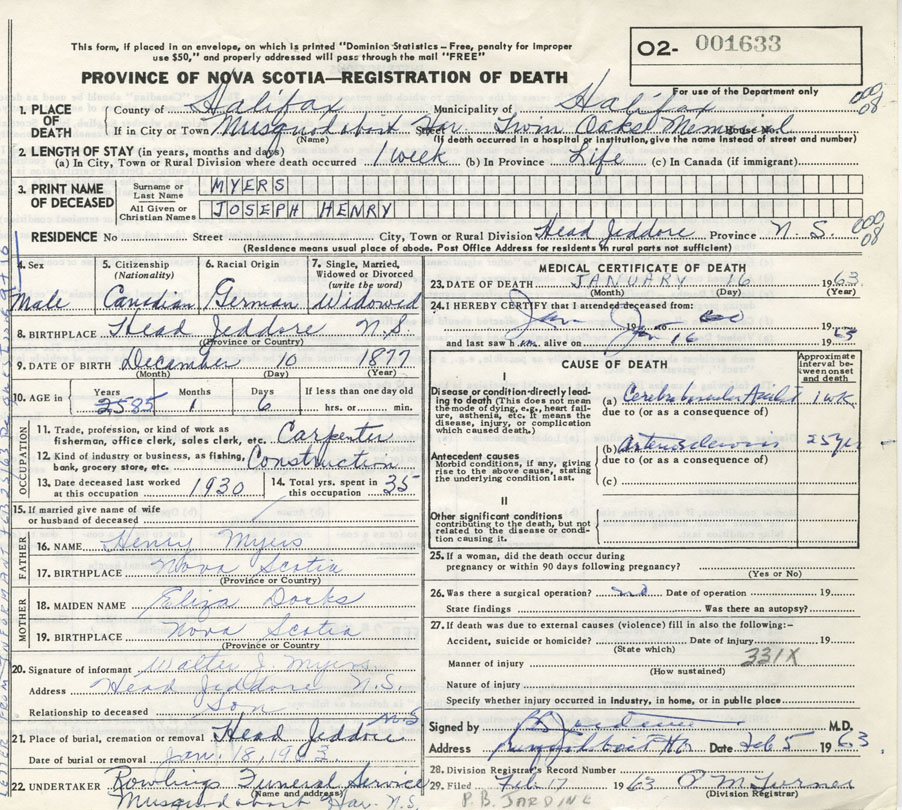 This form, if placed in an envelope, on which is printed "Dominion Statistics – Free, penalty for improper
use $50," and properly addressed will pass through the mail "FREE"
O2- 001633
For use of the Department only
PROVINCE OF NOVA SCOTIA—REGISTRATION OF DEATH
000 08
1. PLACE OF DEATH County of Halifax Municipality of Halifax
If in City or Town Musquodoboit Har Street Twin Oaks Memorial House No.
(Name) (If death occurred in a hospital or institution, give the name instead of street and number)
2. LENGTH OF STAY (in years, months and days)
(a) In City, Town or Rural Division where death occurred 1 week (b) In Province Life (c) In Canada (if immigrant)
3. PRINT NAME OF DECEASED Surname or Last Name MYERS
All Given or Christian Names JOSEPH HENRY
RESIDENCE No Street City, Town or Rural Division Head Jeddore Province N. S. 000 08
(Residence means usual place of abode. Post Office Address for residents in rural parts not sufficient)
4. Sex 5. Citizenship (Nationality) 6. Racial Origin 7. Single, Married, Widowed or Divorced (write the word)
Male Canadian German Widowed
8. BIRTHPLACE Head Jeddore N.S
(Province or Country)
9. DATE OF BIRTH December 10 1877
(Month) (Day) (Year)
10. AGE in Years 85 Months 1 Days 6 If less than one day old hrs. or min.
OCCUPATION
11. Trade, profession, or kind of work as fisherman, office clerk, sales clerk, etc. Carpenter
12. Kind of industry or business, as fishing, bank, grocery store, etc. Construction
13. Date deceased last worked at this occupation 1930 14. Total yrs. spent in this occupation 35
15. If married give name of wife or husband of deceased
FATHER
16. NAME Henry Myers
17. BIRTHPLACE Nova Scotia
(Province or Country)
MOTHER
18. MAIDEN NAME Eliza Dooks
19. BIRTHPLACE Nova Scotia
(Province or Country)
20. Signature of informant Walter J. Myers
Address Head Jeddore N.S.
Relationship to deceased Son
21. Place of burial, cremation or removal Head Jeddore N.S
Date of burial or removal Jan. 18, 1963
22. UNDERTAKER Rowlings Funeral Service
(Name and address)
Musquodoboit Har. N.S.
MEDICAL CERTIFICATE OF DEATH
23. DATE OF DEATH JANUARY 16 1963
(Month) (Day) (Year)
24. I HEREBY CERTIFY that I attended deceased from:
Jan 19 to 19
and last saw h im alive on Jan 16 19 63
CAUSE OF DEATH
Approximate interval between onset and death
I
Disease or condition directly leading to death (This does not mean the mode of dying, e.g., heart failure, asthenia, etc. It means the disease, injury, or complication which caused death.)
(a) Cerebrovascular Accident 1 wk
due to (or as a consequence of)
(b) Arteriosclerosis 25 yrs
due to (or as a consequence of)
Antecedent causes
Morbid conditions, if any, giving rise to the above cause, stating the underlying condition last.
(c)
II
Other significant conditions
contributing to the death, but not related to the disease or condition causing it.
25. If a woman, did the death occur during pregnancy or within 90 days following pregnancy?
(Yes or No)
26. Was there a surgical operation? no Date of operation 19
State findings Was there an autopsy?
27. If death was due to external causes (violence) fill in also the following:–
Accident, suicide or homicide? Date of injury 19
(State which)
331X
Manner of injury
(How sustained)
Nature of injury
Specify whether injury occurred in industry, in home, or in public place
Signed by PB Jardine M.D.
Address Date Feb 5 19 63
28. Division Registrar's Record Number
29. Filed Feb 17 1963 O M Turner
(Division Registrar)
P.B. JARDINE